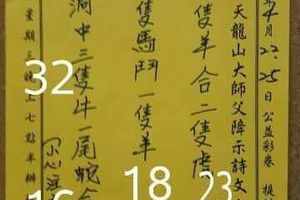 年4月22.25日公益彩券提
天龍山大師父降示詩文
隻羊合二隻虎
隻馬鬥一隻羊
洞中三隻牛一尾蛇
星期三晚上七點半辦
32
18
23
16